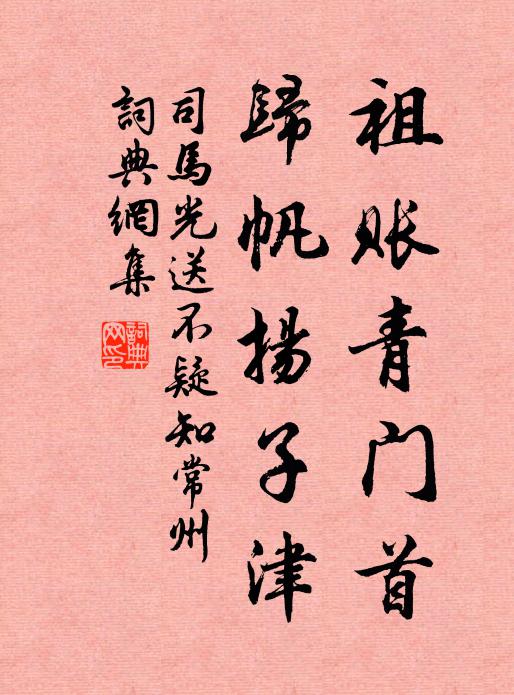 祖账青门首
歸帆揚子津
司馬光送不疑知常州
詞典網集
詞典
网印